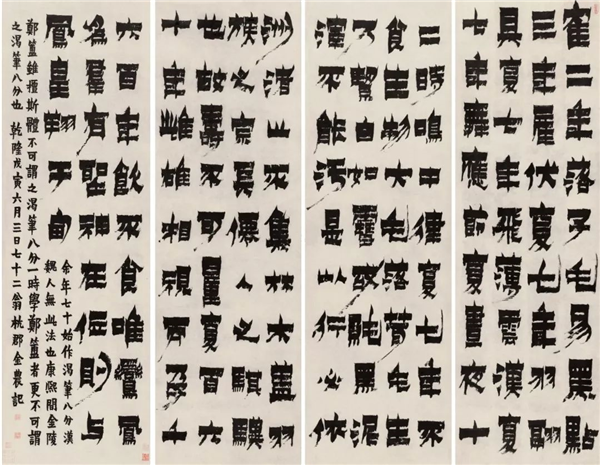 隺二年落子毛易黑點
三年雇伏夏七年羽翮
具夏七年飛薄雲漢夏
七年舞應節晝夜十
二時鳴中律夏七年不
食生物大毛落茸毛生
乃絜白如雪或純黑泥
水不能汚是以行必依
洲渚止不集林木蓋羽
族之宗長僊人之騏驥
也故壽不可量夏百六
十年雌雄相視而孕千
六百年飲不食唯鸞鳳
爲羣有聖神在位則与
鳳皇翔于甸
余年七十始作渴筆八分漢
魏人無此法也康熙間金陵
鄭簠雖擅斯體不可謂之渴筆八分一時學鄭簠者更不可謂
之渴筆八分也 乾隆戊寅六月三日七十二翁杭郡金農記